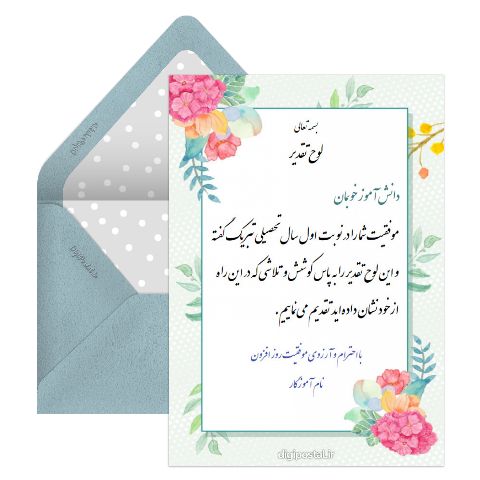 بسمه تعالی
لوح تقدیر
دانش آموز خوبمان
موفقیت شما را در نوبت اول سال تحصیلی تبریک گفته
و این لوح تقدیر را به پاس کوشش و تلاشی که در این راه
از خود نشان داده اید تقدیم می نماییم.
با احترام و آرزوی موفقیت روز افزون
نام آموزگار
digipostal.ir
DigiPostal.ir
DigiPostal.ir